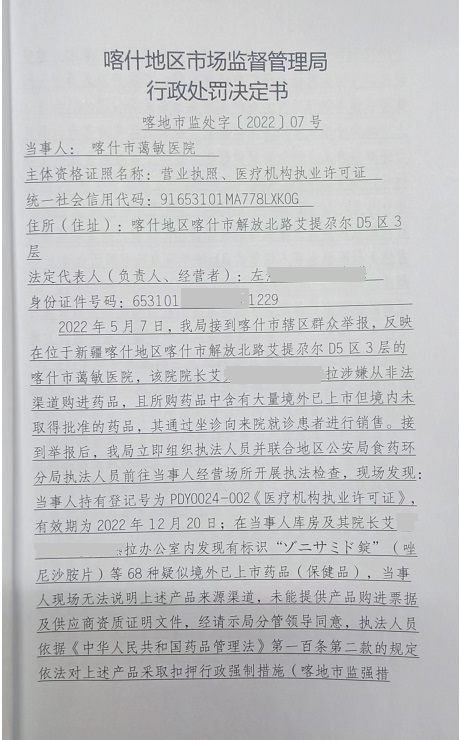 喀什地区市场监督管理局
行政处罚决定书
喀地市监处字〔2022〕07号
当事人： 喀什市蔼敏医院
主体资格证照名称：营业执照、医疗机构执业许可证
统一社会信用代码：91653101MA778LXK0G
住所（住址）：喀什地区喀什市解放北路艾提尕尔D5区3
层
法定代表人（负责人、经营者）：左
身份证件号码：653101 1229
2022年5月7日，我局接到喀什市辖区群众举报，反映
在位于新疆喀什地区喀什市解放北路艾提尕尔D5区3层的
喀什市蔼敏医院，该院院长艾 拉涉嫌从非法
渠道购进药品，且所购药品中含有大量境外已上市但境内未
取得批准的药品，其通过坐诊向来院就诊患者进行销售。接
到举报后，我局立即组织执法人员并联合地区公安局食药环
分局执法人员前往当事人经营场所开展执法检查，现场发现：
当事人持有登记号为PDY0024-002《医疗机构执业许可证》，
有效期为2022年12月20日；在当事人库房及其院长艾
拉办公室内发现有标识“ゾニサミド錠”（唑
尼沙胺片）等68种疑似境外已上市药品（保健品），当事
人现场无法说明上述产品来源渠道，未能提供产品购进票据
及供应商资质证明文件，经请示局分管领导同意，执法人员
依据《中华人民共和国药品管理法》第一百条第二款的规定
依法对上述产品采取扣押行政强制措施（喀地市监强措